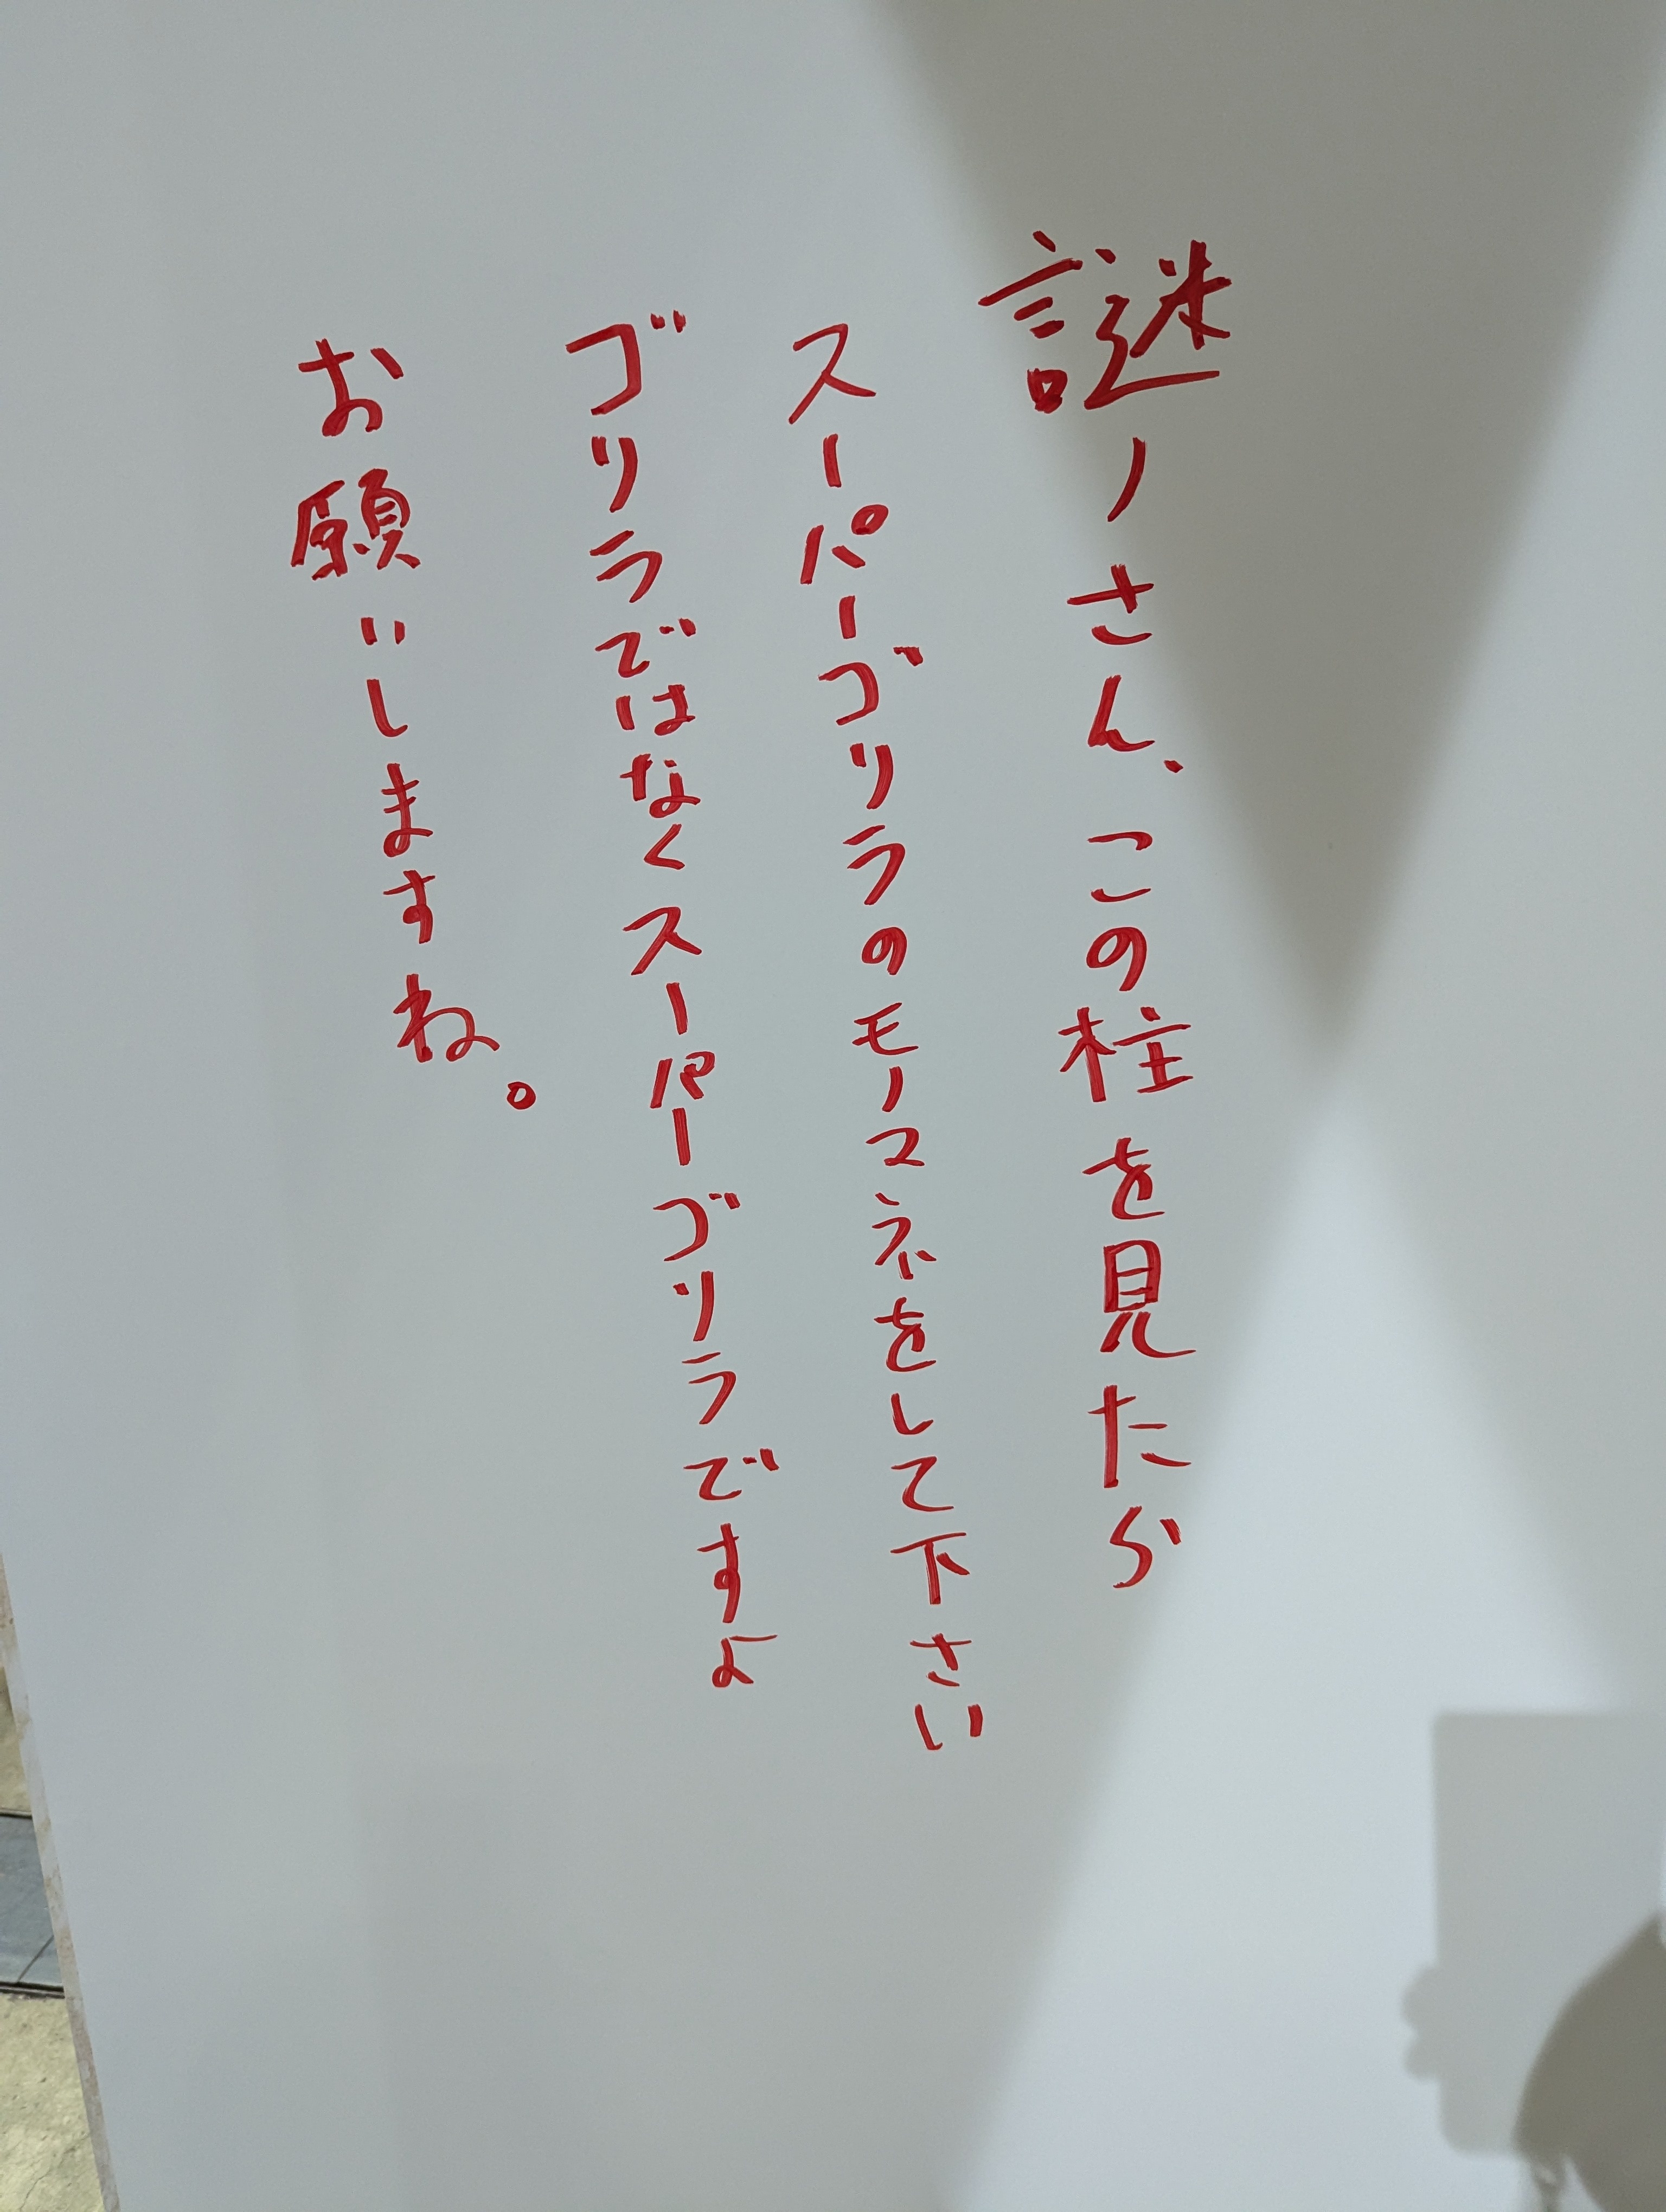 謎ノさん、この柱を見たら
スーパーゴリラのモノマネをして下さい
ゴリラではなくスーパーゴリラですよ
お願いしますね。